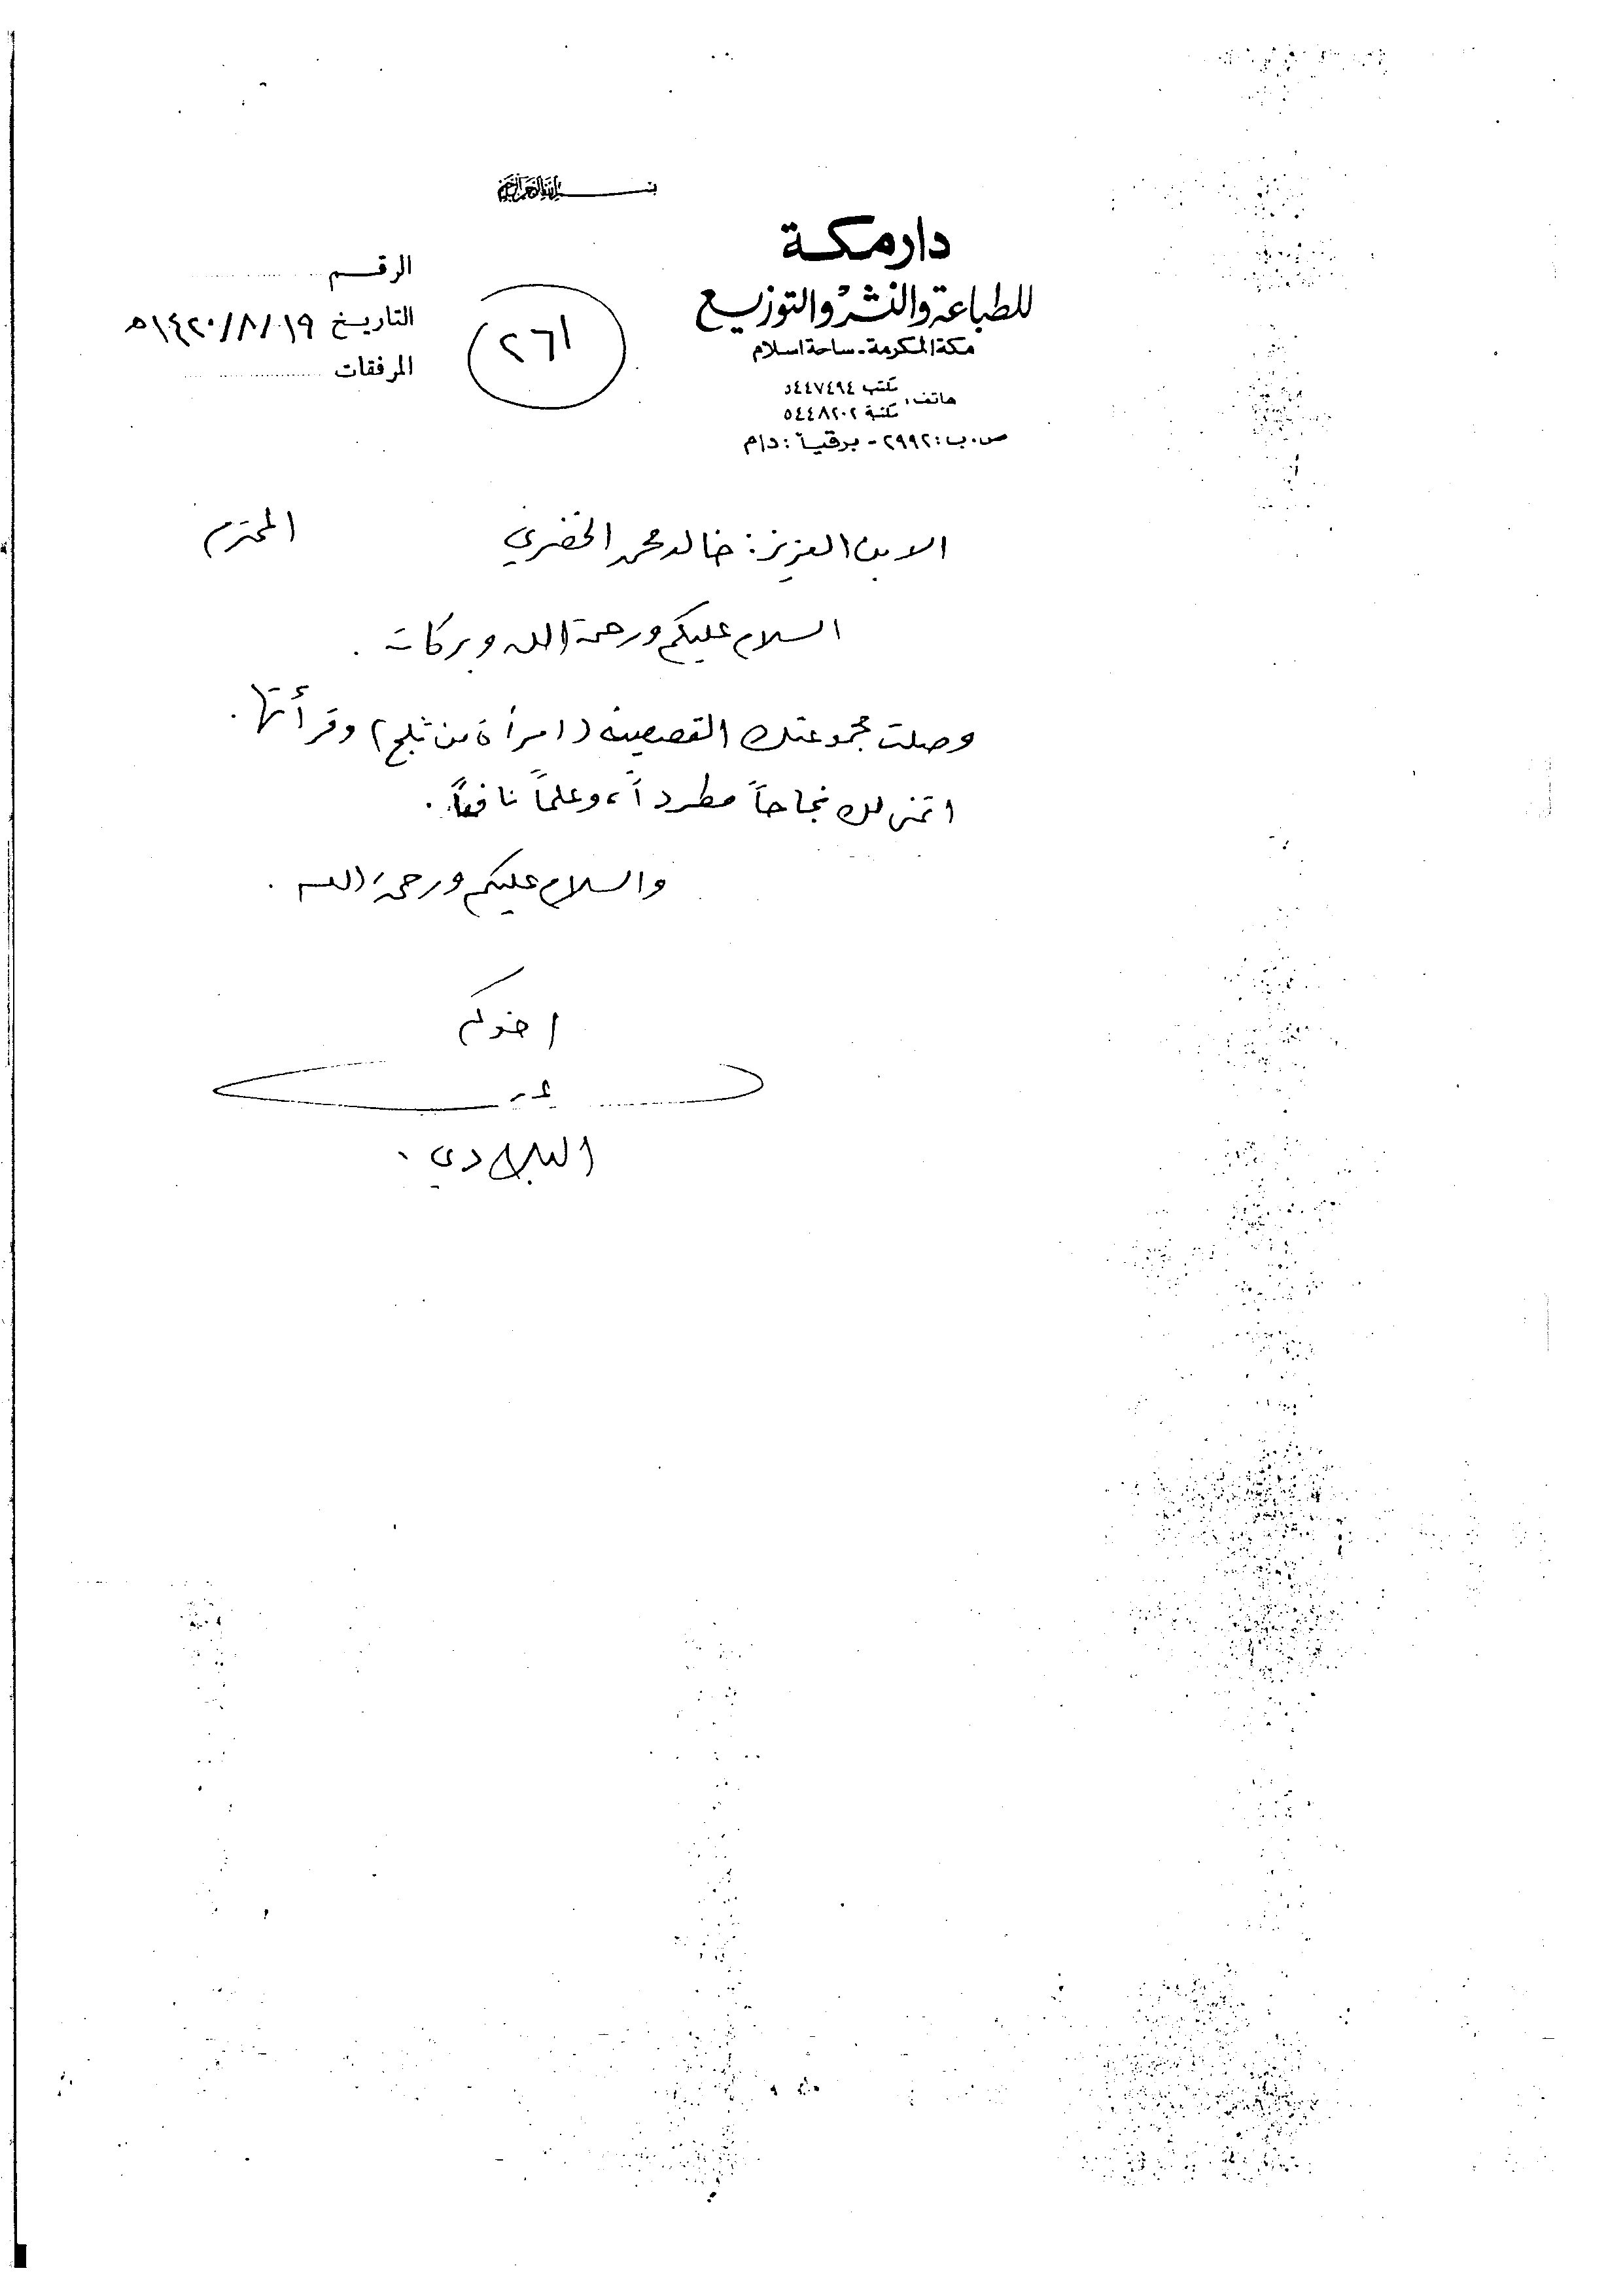 بسم الله الرحمن الرحيم
دار مكة
للطباعة والنشر والتوزيع
مكة المكرمة - ساحة اسلام
هاتف: مكتب ٥٤٤٧٤٩٤
مكتبة ٥٤٤٨٢٠٢
ص.ب: ٢٩٩٢ - برقياً: دام
الرقم
التاريخ ١٩/٨/١٤٢٠هـ
المرفقات
٢٦١
الابن العزيز: خالد محمد الخضري المحترم
السلام عليكم ورحمة الله وبركاته.
وصلت مجموعتك القصصية (امرأة من ثلج) وقرأتها.
اتمنى لك نجاحاً مطرداً، وعلماً نافعاً.
والسلام عليكم ورحمة الله.
اخوكم
البلادي.